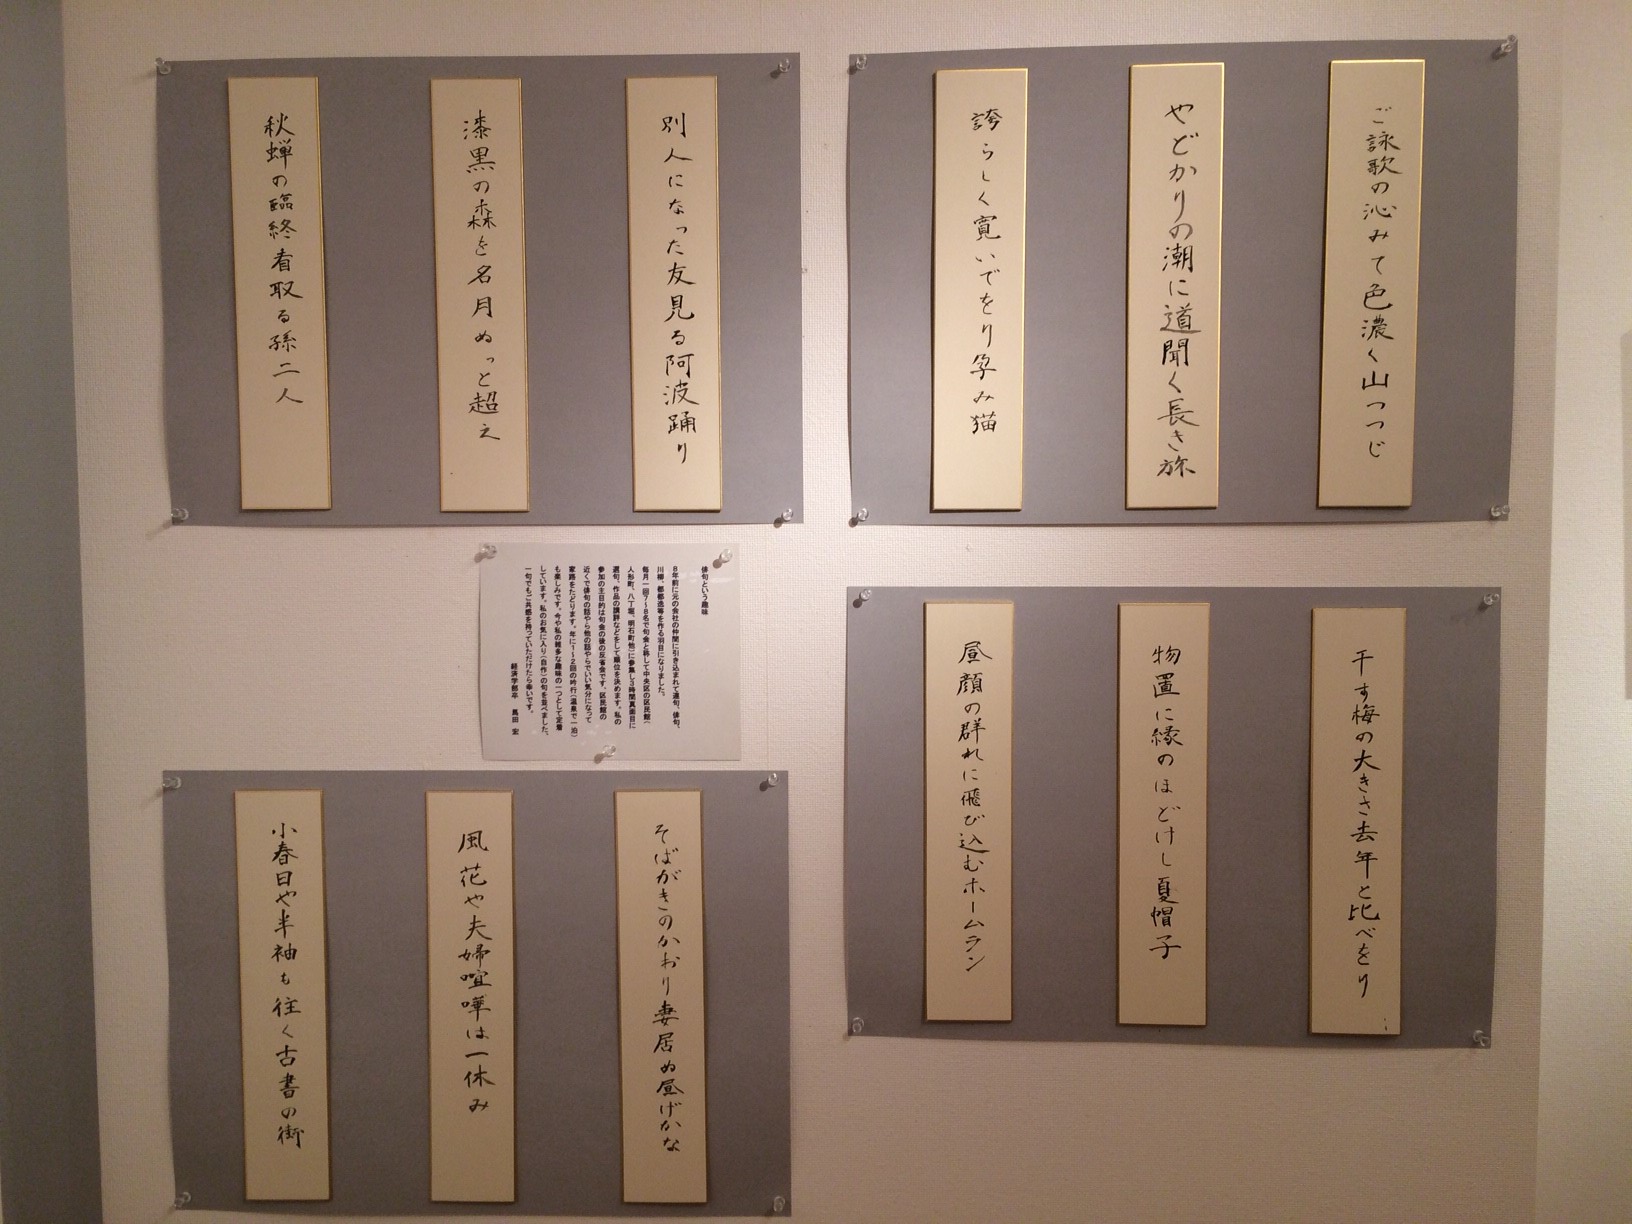 ご詠歌の沁みて色濃く山つつじ
やどかりの潮に道聞く長き旅
誇らしく寛いでをり孕み猫
干す梅の大きさ去年と比べをり
物置に縁のほどけし夏帽子
昼顔の群れに飛び込むホームラン
別人になった友見る阿波踊り
漆黒の森を名月ぬっと超え
秋蝉の臨終看取る孫二人
俳句という趣味
8年前に元の会社の仲間に引き込まれて連句、俳句、
川柳、都都逸等を作る羽目になりました。
毎月一回7~8名で句会と称して中央区の区民館(
人形町、八丁堀、明石町他)に参集し3時間真面目に
選句、作品の講評などをして順位を決めます。私の
参加の主目的は句会の後の反省会です。区民館の
近くで俳句の話やら他の話やらでいい気分になって
家路をたどります。年に1~2回の吟行(温泉で一泊)
も楽しみです。今や私の雑多な趣味の一つとして定着
しています。私のお気に入り(自作)の句を並べました、
一句でもご共感を持っていただけたら幸いです。
経済学部卒 萬田 宏
そばがきのかおり妻居ぬ昼げかな
風花や夫婦喧嘩は一休み
小春日や半袖も往く古書の街